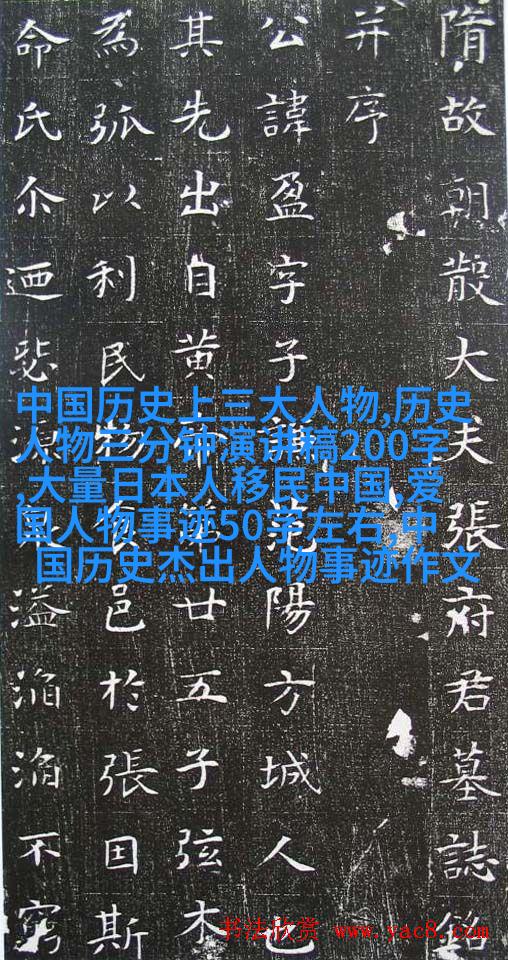 隋故朝散大夫張府君墓誌銘
并序
公諱盈字子謙范陽方城人也
其先出自黃帝第廿五子弦木
為弧以利民物食邑於張因斯
命氏尒迺悲源溢滔滔不窮
中国历史上三大人物,历史
人物三分钟演讲稿200字
,大量日本人移民中国,爱
国人物事迹50字左右,中
国历史杰出人物事迹作文
书法欣赏 www.yac8.com